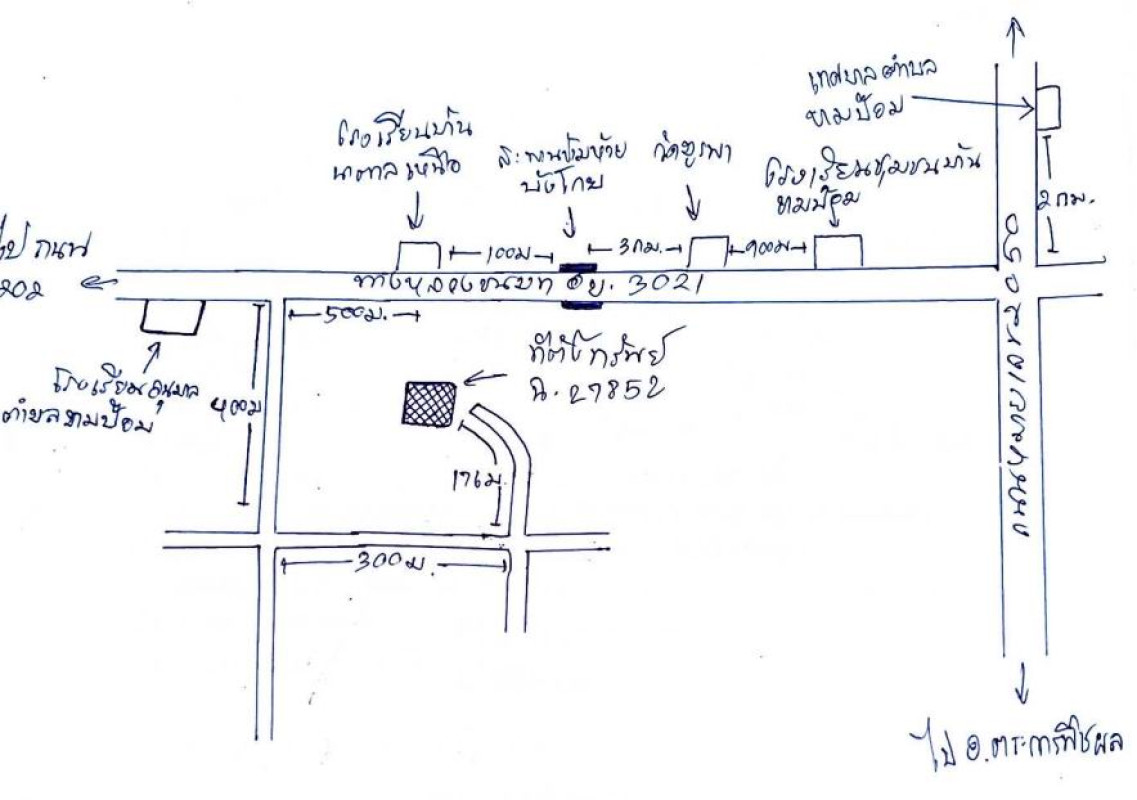 เทศบาลตำบล
ขามป้อม
โรงเรียนบ้าน
นาตาลเหนือ
สะพานข้ามห้วย
บังโกย
วัดบูรพา
โรงเรียนชุมชนบ้าน
ขามป้อม
2 กม.
ไป ถนน
202
100ม
3กม.
900ม
ทางหลวงชนบท อบ. 3021
500ม.
ที่ตั้งทรัพย์
ฉ. 27852
โรงเรียนอนุบาล
ตำบลขามป้อม
400ม
176ม
300ม.
ถนนหมายเลข 2050
ไป อ.ตระการพืชผล